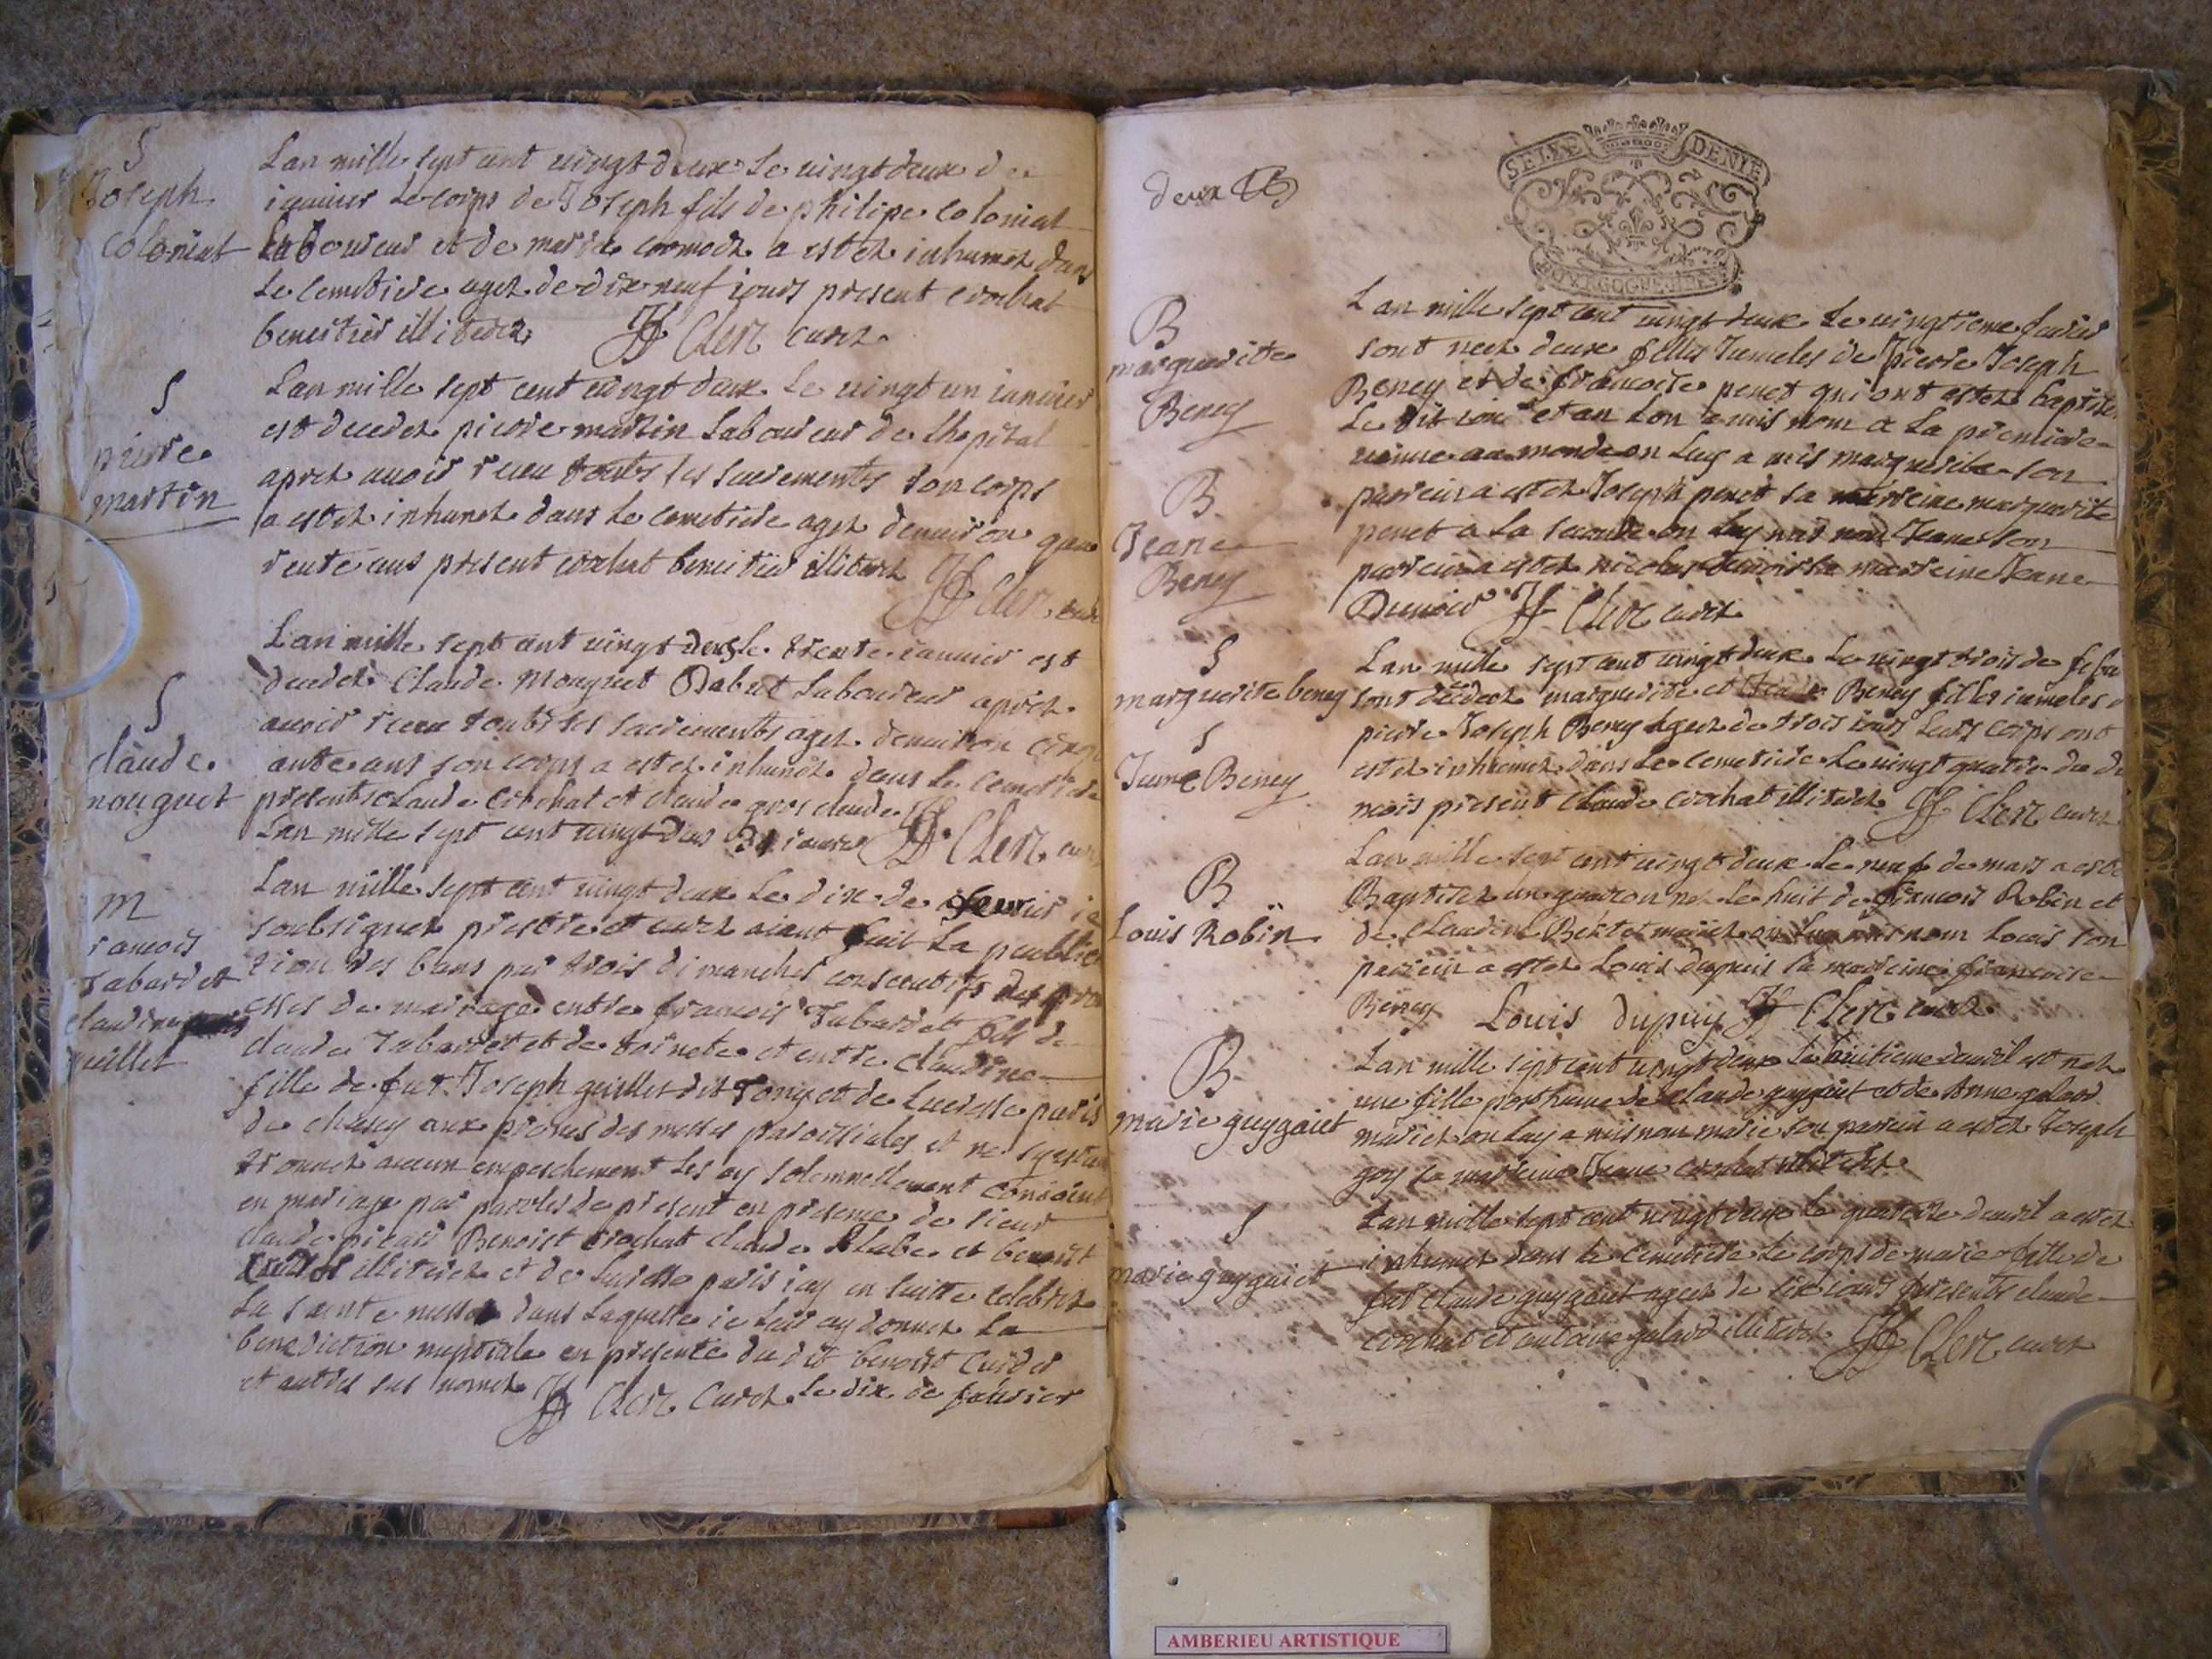 S
Joseph
Coloniat
Lan mille sept cent vingt deux Le vingtdeux de
ianvier Le corps de Joseph fils de philipe coloniat
Laboureur et de marie a estez inhumez dans
Le cemetiere agez de dix neuf iours present crochat
benestier illiterez JF Clerc curez
S
pierre
martin
Lan mille sept cent vingt deux Le vingt un ianvier
est decedez pierre martin Laboureur de lhopital
aprez avoir receu touts ses sacrements son corps
a estez inhumez dans Le cemetiere agez denviron qua
rente ans present crochat benestier illiterez
JF Clerc curez
S
claude
mouguet
Lan mille sept cent vingt deux Le trente ianvier est
decedez Claude Mouguet Laboureur aprez
avoir receu touts ses sacrements agez denviron cinqu
ante ans son corps a estez inhumez dans Le cemetiere
presents claude crochat et claude gros claude
Lan mille sept cent vingt deux 31 ianvier JF Clerc curez
M
francois
Tabardet
claudine
guillet
Lan mille sept cent vingt deux Le dix de fevrier ie
soubsignez prestre et curez aiant fait La publica
tion des bans par trois dimanches consecutifs des prom
esses de mariage entre francois Tabardet fils de
claude Tabardet et de toinete et entre claudine
fille de feu Joseph guillet dit et de Lucresse paris
de chasey aux prosnes des messes paroissiales et ne sestan
trouvez aucun empeschement Les ay solemnellement conioint
en mariage par paroles de present en presence de sieur
claude picard Benoist crochat claude Labe et benoist
illiterez et de Lucresse paris iay en suitte celebrez
La sainte messe dans Laquelle ie Leur ay donnez La
benediction nuptiale en presence du dit benoist
et autres sus nomez JF Clerc Curez Le dix de febvrier
deux
SEIZE DENIE
BOURGOGNE BRESSE
B
marguerite
Beney
B
Jeane
Beney
Lan mille sept cent vingt deux Le vingtieme fevrier
sont neez deux filles Jumeles de pierre Joseph
Beney et de francoise penet qui ont estez baptisez
Le dit iour et an Lon a mis nom a La premiere
venue au monde on Luy a mis marguerite son
parrein a estez Joseph penet sa marreine marguerite
penet a La seconde on Luy mis nom Jeane son
parrein a estez nicolas sa marreine Jeane
JF Clerc curez
S
marguerite beney
S
Jeane Beney
Lan mille sept cent vingt deux Le vingt trois de febv
sont decedez marguerite et Jeane Beney filles iumeles d
pierre Joseph Beney Agez de trois iours Leurs corps ont
estez inhumez dans Le cemetiere Le vingt quatre du di
mois present claude crochat illiterez JF Clerc curez
B
Louis Robin
Lan mille sept cent vingt deux Le neuf de mars a este
Baptisez un garcon nez Le huit de francois Robin et
de claudine mariez on Luy mis nom Louis son
parrein a estez Louis dupuis sa marreine francoise
Beney Louis dupuy JF Clerc curez
B
marie guygaiet
Lan mille sept cent vingt deux Le huitieme davril est nez
une fille posthume de claude guygaiet et de Anne galard
mariez on Luy a mis nom marie son parrein a estez Joseph
goy sa marreine Jeane crochat illiterez
S
marie guygaiet
Lan mille sept cent vingt deux Le quatorze davril a estez
inhumez dans Le cemetiere Le corps de marie fille de
feu claude guygaiet agez de six iours presents claude
crochat et antoine galard illiterez JF Clerc curez
AMBERIEU ARTISTIQUE